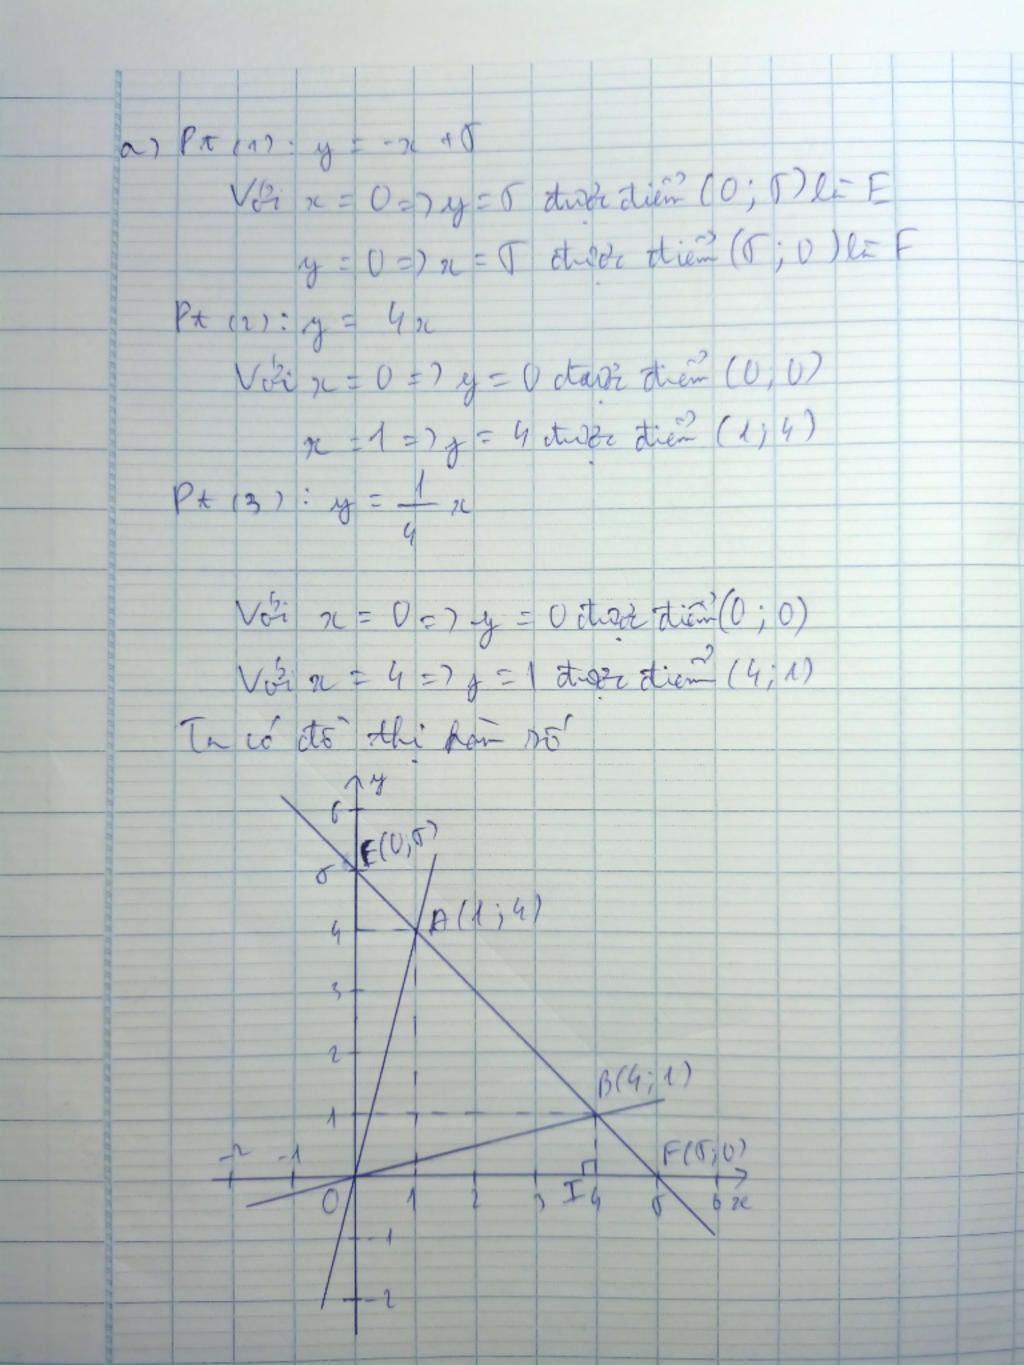 a) Pt (1): y = -x + 5
Với x = 0 => y = 5 được điểm (0; 5) là E
y = 0 => x = 5 được điểm (5; 0) là F
Pt (2): y = 4x
Với x = 0 => y = 0 được điểm (0; 0)
x = 1 => y = 4 được điểm (1; 4)
Pt (3): y = 1/4 x
Với x = 0 => y = 0 được điểm (0; 0)
Với x = 4 => y = 1 được điểm (4; 1)
Ta có đồ thị hàm số
y
6
E(0;5)
5
A(1;4)
4
3
2
B(4;1)
1
F(5;0)
-2 -1
O 1 2 3 I 4 5 6 x
-1
-2